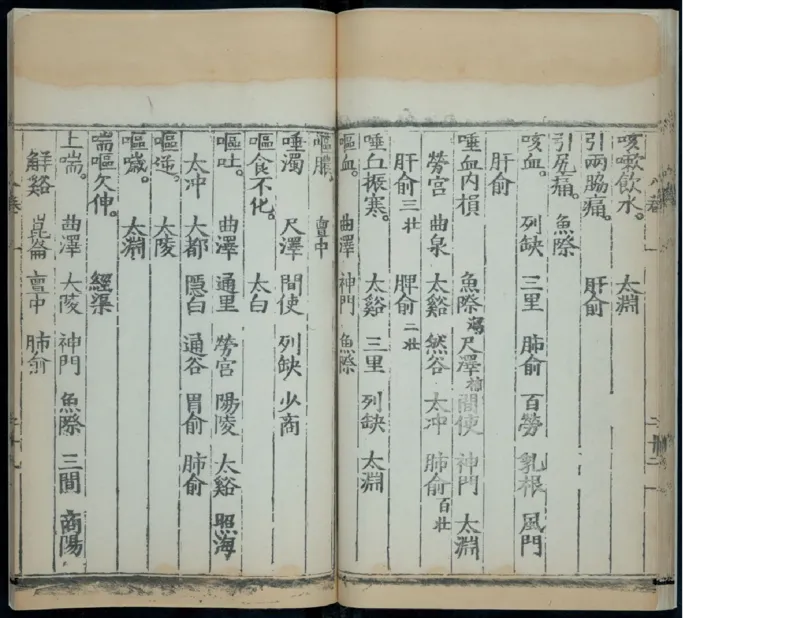 咳嗽飲水。 太淵
引兩脇痛。 肝俞
引尻痛。 魚際
咳血。 列缺 三里 肺俞 百勞 乳根 風門
肝俞
唾血内損 魚際瀉 尺澤補 間使 神門 太淵
勞宮 曲泉 太谿 然谷 太冲 肺俞百壯
肝俞三壯 脾俞二壯
唾血振寒。 太谿 三里 列缺 太淵
嘔血。 曲澤 神門 魚際
嘔膿。 亶中
唾濁 尺澤 間使 列缺 少商
嘔食不化。 太白
嘔吐。 曲澤 通里 勞宮 陽陵 太谿 照海
太冲 大都 隱白 通谷 胃俞 肺俞
嘔逆。 大陵
嘔噦。 太淵
喘嘔欠伸。 經渠
上喘。 曲澤 大陵 神門 魚際 三間 商陽
解谿 崑崙 亶中 肺俞